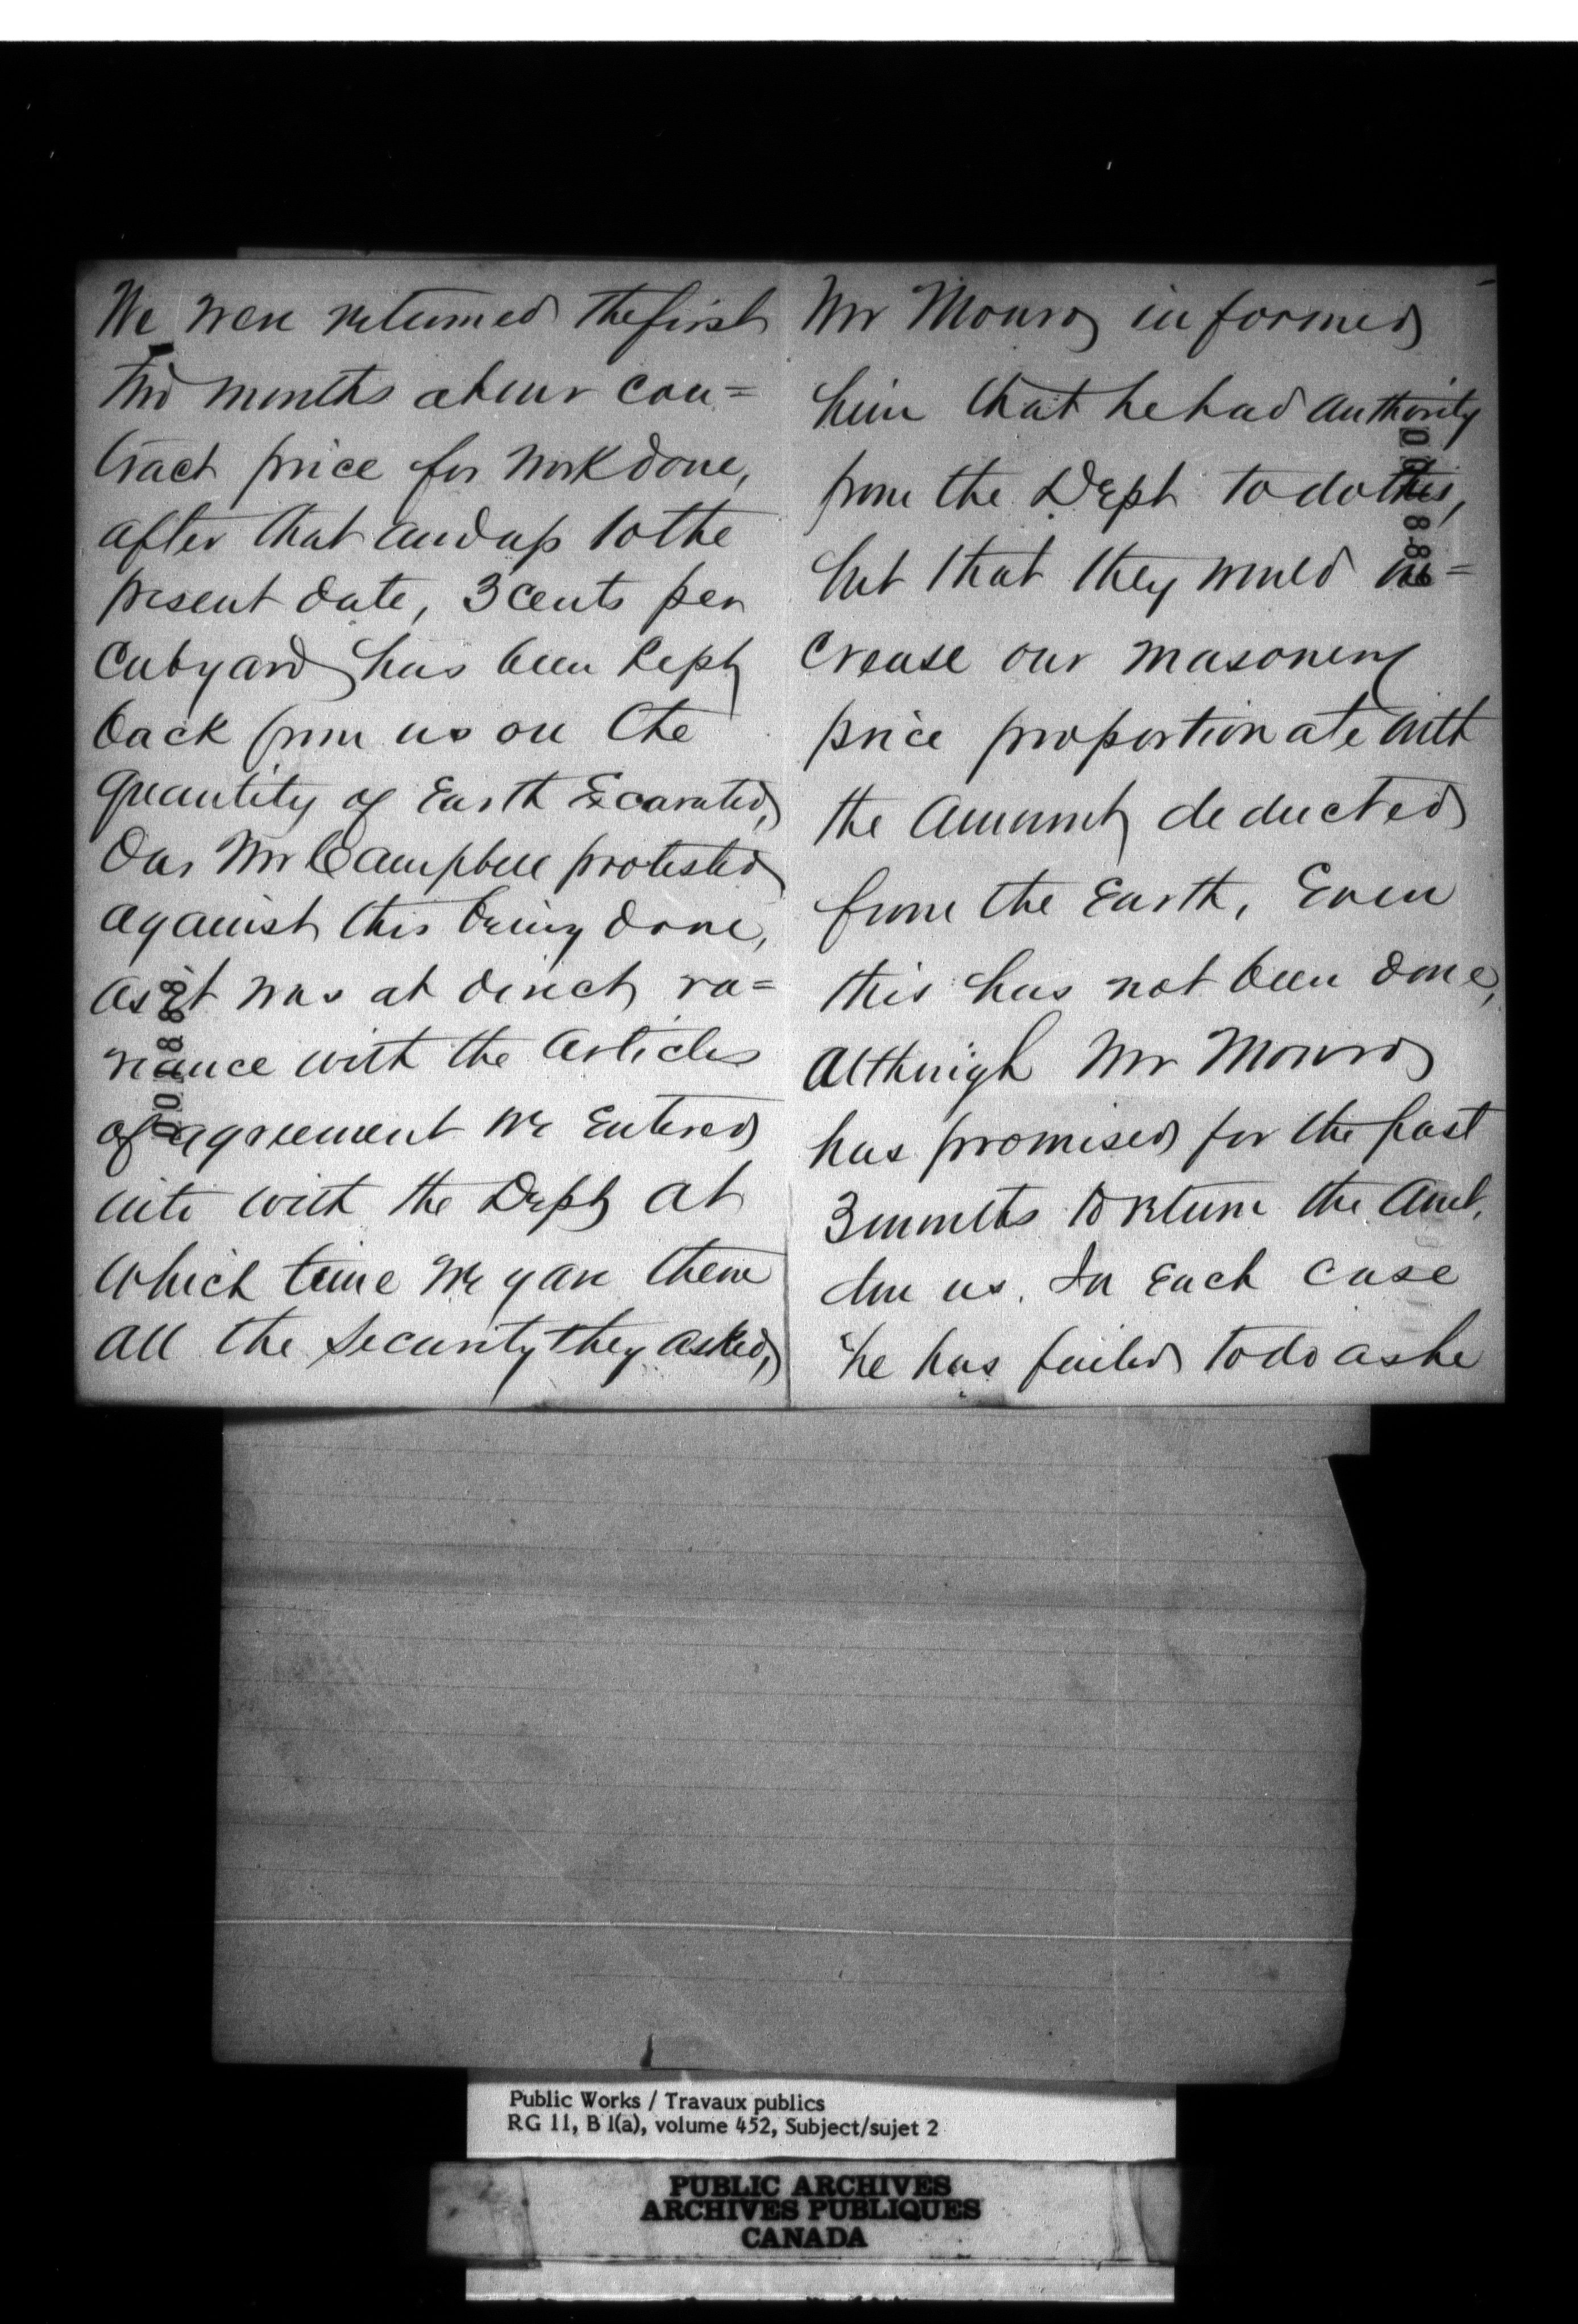 We were returned the first
two months at our con=
tract price for work done,
after that and up to the
present date, 3 cents per
Cub yard has been kept
back from us on the
quantity of Earth Excavated,
Our Mr Campbell protested
against this being done,
as it was at direct va=
riance with the articles
of agreement we entered
into with the Dept at
which time we gave them
all the security they asked,
Mr Monro informed
him that he had authority
from the Dept to do this,
but that they would in=
crease our masonery
price proportionate with
the amount deducted
from the Earth, Even
this has not been done,
although Mr Monro
has promised for the past
3 months to return the amt.
due us. In each case
he has failed to do as he
Public Works / Travaux publics
RG 11, B 1(a), volume 452, Subject/sujet 2
PUBLIC ARCHIVES
ARCHIVES PUBLIQUES
CANADA